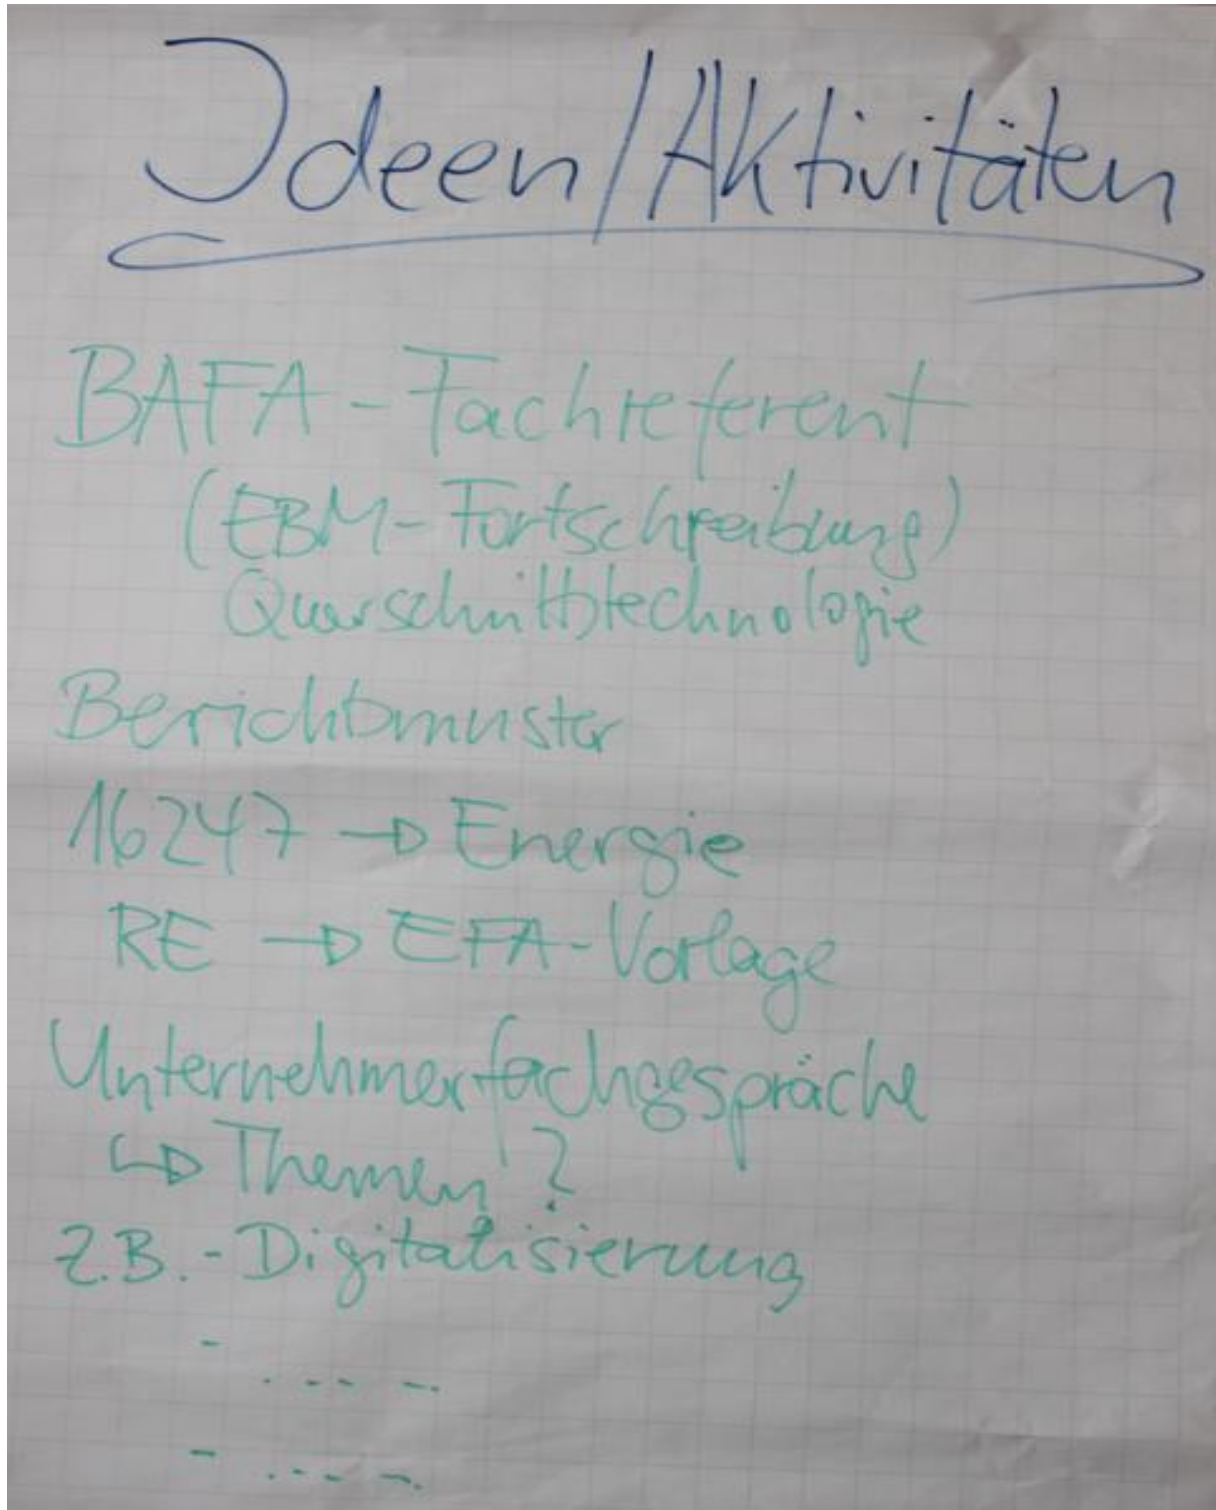 Ideen/Aktivitäten
BAFA-Fachreferent
(EBM-Fortschreibung)
Querschnittstechnologie
Berichtsmuster
16247 → Energie
RE → EFA-Vorlage
Unternehmerfachgespräche
↳ Themen?
z.B. - Digitalisierung
- .....
- .....